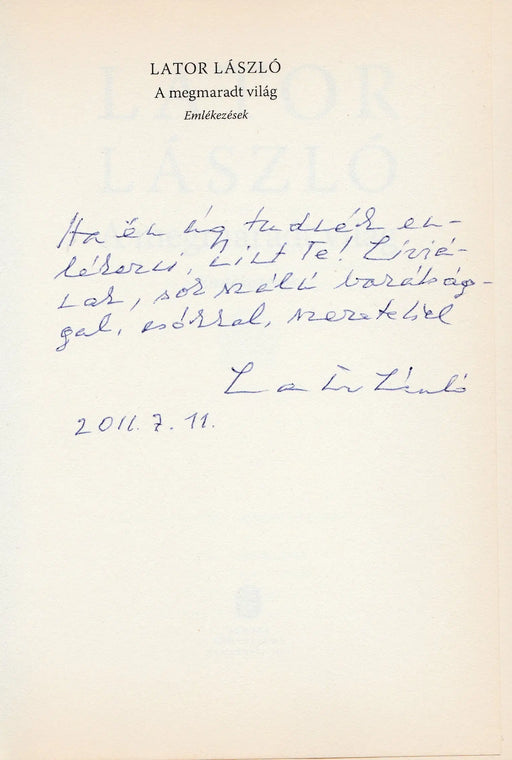 LATOR LÁSZLÓ
A megmaradt világ
Emlékezések
Ha én úgy tudnék em-
lékezni, mint Te! Líviá-
nak, sok szép barátság-
gal, csókkal, szeretettel
Lator László
2011. 7. 11.